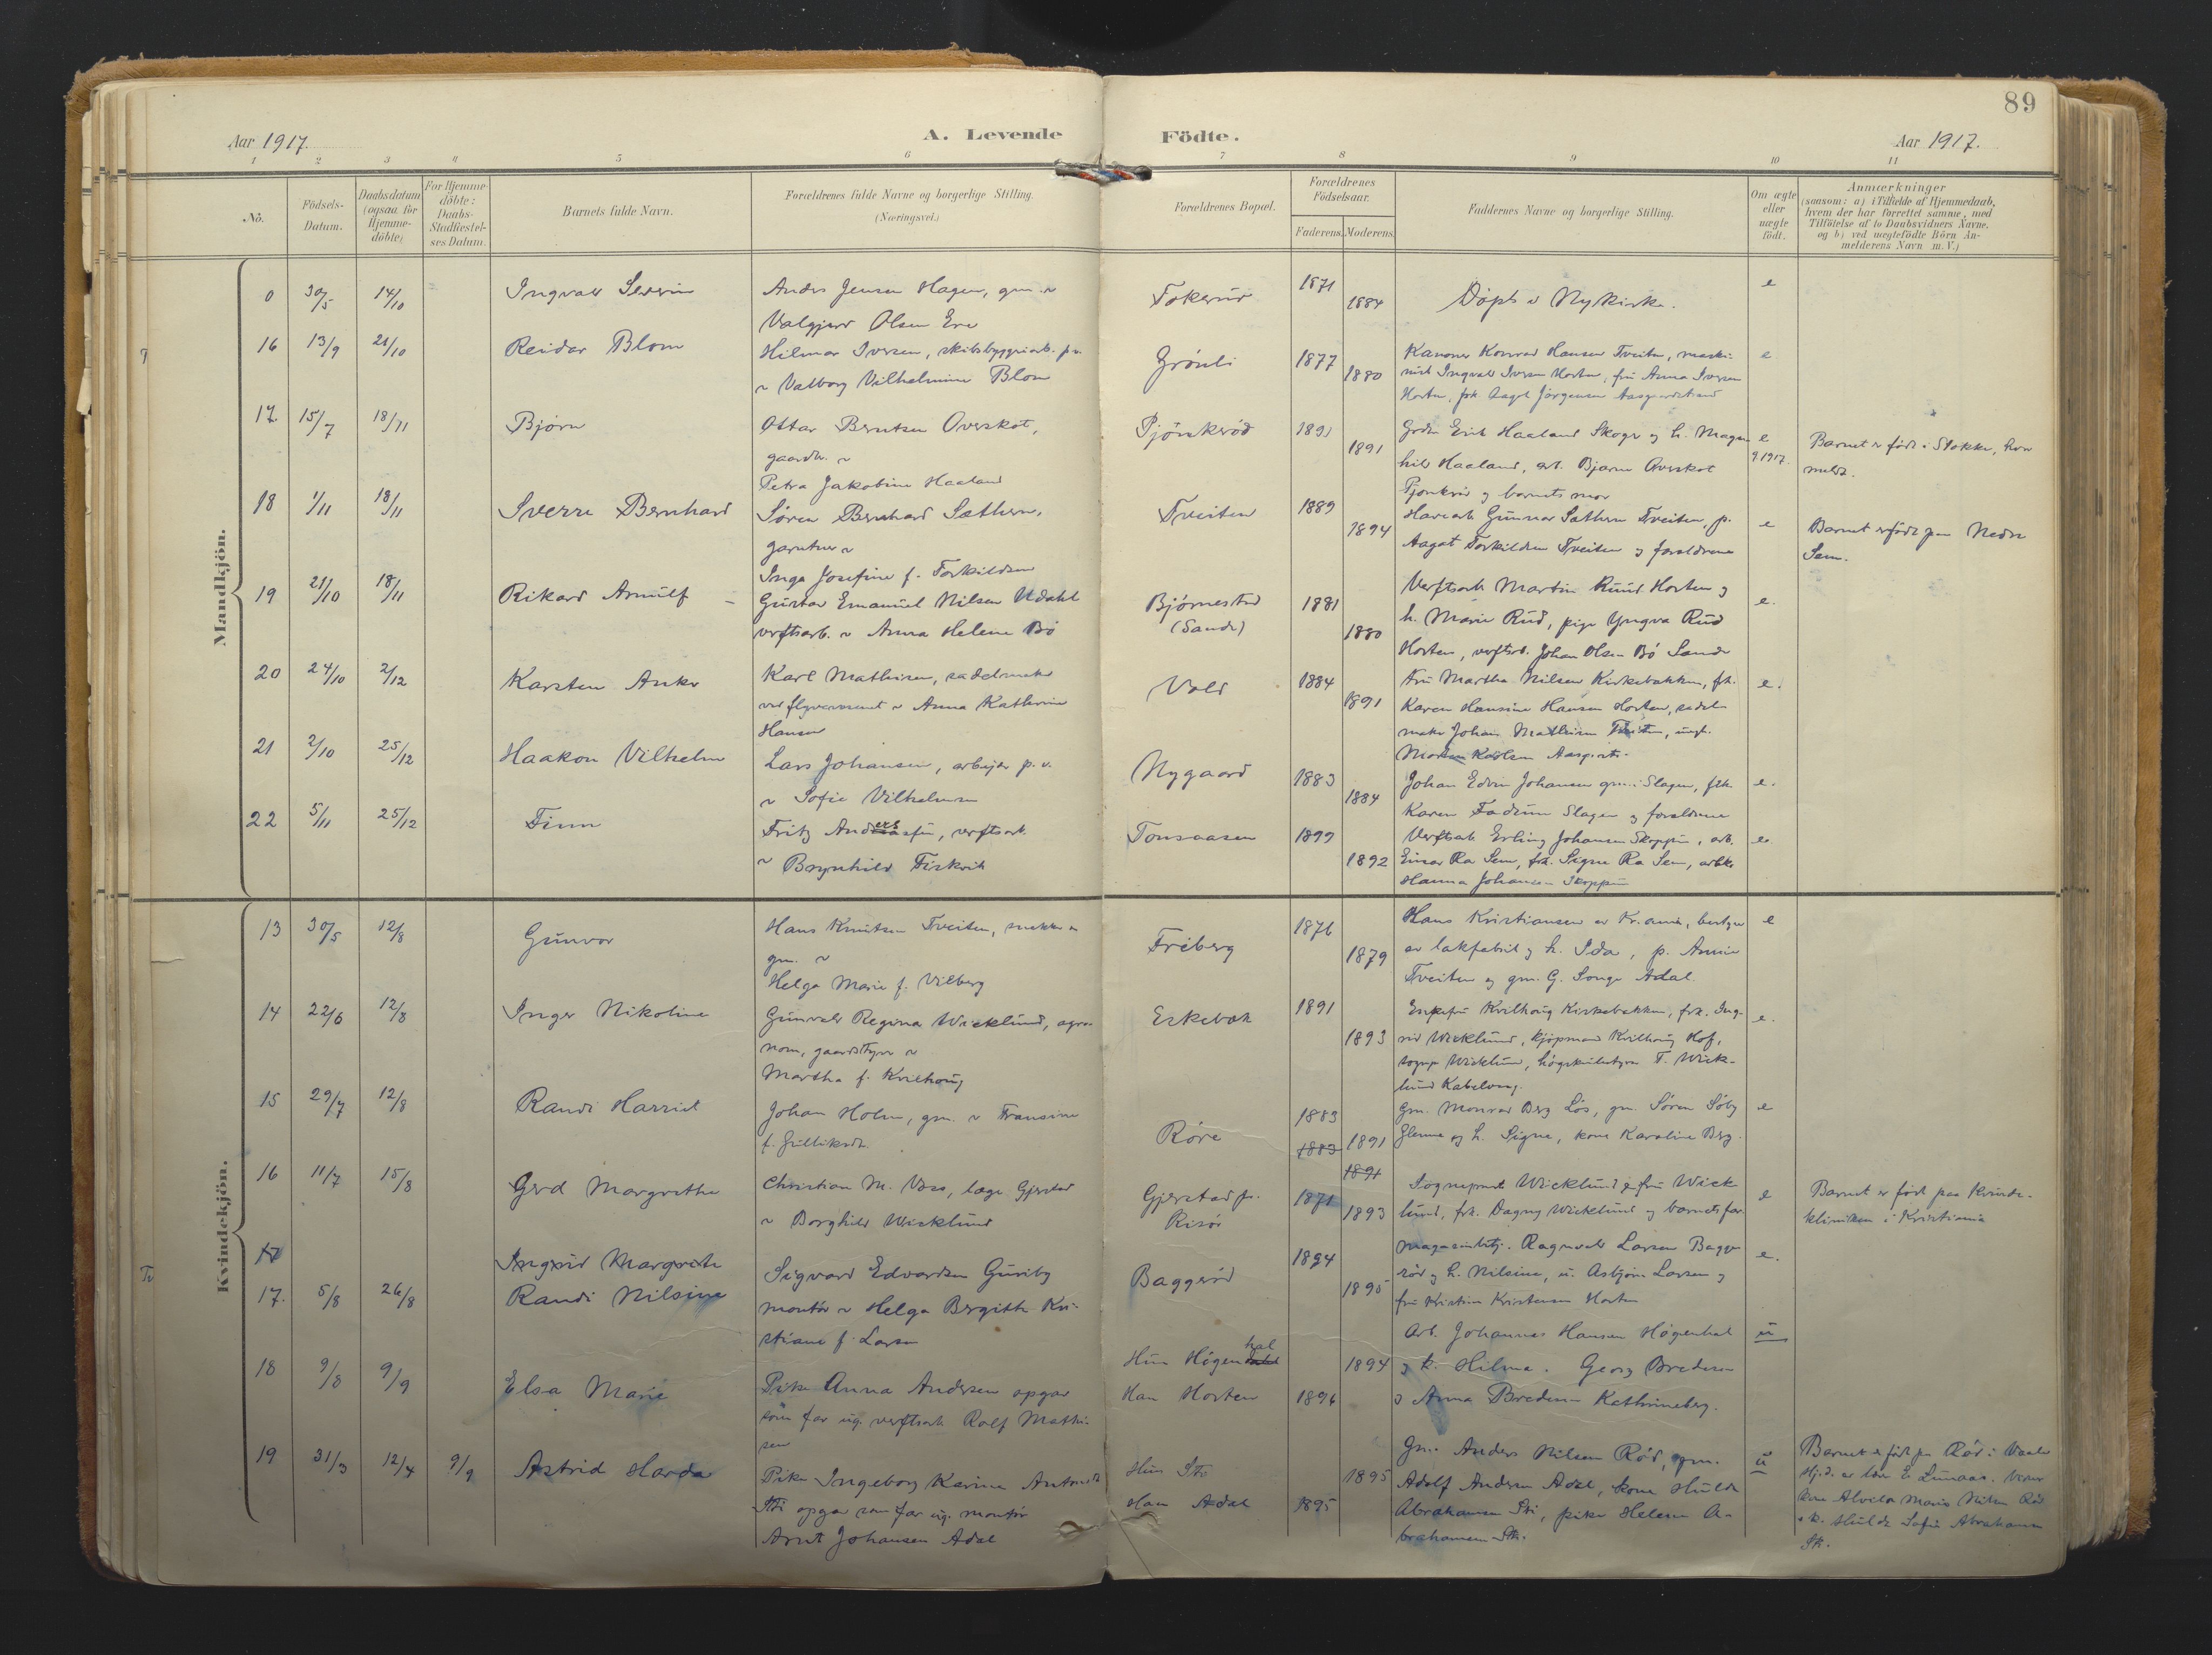 89
Aar 1917.
A. Levende Födte.
Aar 1917.
1 2 3 4 5 6 7 8 9 10 11
No.
Födsels-Datum.
Daabsdatum (ogsaa for Hjemmedöbte)
For Hjemmedöbte: Daabs-Stadfæstelses Datum.
Barnets fulde Navn.
Forældrenes fulde Navne og borgerlige Stilling.
(Næringsvei.)
Forældrenes Bopæl.
Forældrenes Födselsaar.
Faderens. Moderens.
Faddernes Navne og borgerlige Stilling.
Om ægte eller uægte födt.
Anmærkninger
(saasom: a) i Tilfælde af Hjemmedaab,
hvem der har forrettet samme, med
Tilföielse af to Daabsvidners Navne.
og b) ved uægtefödte Börn An-
melderens Navn m. V.)
Mandkjön.
0 30/5 14/10 Ingvald Severin
Anders Jensen Hagen, gm. &
Valgjerd Olsen Ere
Fokserød 1871 1884 Döpt i Nykirke. e
16 13/9 21/10 Reidar Blom
Hilmar Iversen, skibsbyggeriarb.
& Valborg Vilhelmine Blom
Grönli 1877 1880
Kanoner Konrad Hansen Tveiten, maski-
nist Ingvald Iversen Horten, fru Anna Iversen
Horten, frk. Aagot Jørgensen Aasgaardstrand
e
17 15/7 18/11 Bjørn
Ottar Berntsen Overskot,
gaardbr. &
Petra Jakobine Haaland
Pjönskeröd 1891 1891
Grdbr. Erik Haaland Skoger og h. Magn
hild Haaland, arb. Bjarne Overskot
og barnets mor
e
9.1917.
Barnet er född i Stokke, hvor
meldt.
18 1/11 18/11 Sverre Bernhard
Søren Bernhard Sæthern,
gartner &
Inga Josefine f. Torkildsen
Tveiten 1889 1894
Gunnar Sæthern Tveiten, p.
Aagot Torkildsen Tveiten og forældrene
e
Barnet er född paa Nedre
Sem.
19 21/10 18/11 Rikard Arnulf
Gustav Emanuel Nilsen Udahl
verftsarb. & Anna Helene Bö
Björnestad
(Sande)
1881 1880
Verftsarb. Martin Ruud Horten og
h. Marie Rud, pige Yngva Rud
Horten, verftsarb. Johan Olsen Bö Sande
e.
20 24/10 2/12 Karsten Anker
Karl Mathisen, sadelmaker
ved flyvevæsenet & Anna Kathrine
Hansen
Vold 1884 1891
Fru Martha Nilsen Kirkebakken, frk.
Karen Hansine Hansen Horten, sadel-
maker Johan Mathisen Tveiten, ungk.
Morten Karlsen Aasgrst.
e.
21 2/10 25/12 Haakon Vilhelm
Lars Johansen, arbeider p. v.
& Sofie Vilhelmsen
Nygaard 1883 1884
Johan Edvin Johansen gm. i Slagen, frk.
Karen Fadum Slagen og forældrene
e.
22 5/11 25/12 Finn
Fritz Andersen, verftsarb.
& Brynhild Fiskvik
Tonsaasen 1899 1892
Verftsarb. Erling Johansen Skoppum, arb.
Einar Ra Sem, frk. Signe Ra Sem, arbke.
Hanna Johansen Skoppum
e.
Kvindekjön.
13 30/5 12/8 Gunvor
Hans Knutsen Tveiten, snekker &
gm. &
Helga Marie f. Vilberg
Fréberg 1876 1879
Hans Kristiansen av Kr.ania, bestyrer
av lakfabrik og h. Ida, p. Annie
Tveiten og gm. G. Songe Adal.
e
14 22/6 12/8 Inger Nikoline
Gunvald Regina Wicklund, agro-
nom, gaardstyrer &
Martha f. Kvilhaug
Eskebæk 1891 1893
Enkefru Kvilhaug Kirkebakken, frk. Ing-
rid Wicklund, kjöpmand Kvilhaug Hof,
sogpr. Wicklund, högskulestyrer T. Wick-
lund Kabelvaag.
e.
15 29/7 12/8 Randi Harriet
Johan Holm, gm. & Fransine
f. Gulliksdt.
Röre 1883 1883 1891 1891
Gm. Monrad Berg Lös, gm. Sören Söby
Glenne og h. Signe, kone Karoline Berg.
e
16 11/7 15/8 Gerd Margrethe
Christian M. Voss, læge Gjerstad
& Borghild Wicklund
Gjerstad pr.
Risör
1871 1893
Sogneprest Wicklund & fru Wick
lund, frk. Dagny Wicklund og barnets far.
e
Barnet er född paa Kvinde-
kliniken i Kristiania
17
Ingrid Margrete
17. 5/8 26/8 Randi Nilsine
Sigvard Edvardsen Guriby
montör & Helga Bergitte Kri-
stiane f. Larsen
Baggeröd 1894 1895
Ragnvald Larsen Bagge
röd og h. Nilsine, u. Asbjörn Larsen og
fru Kristine Kristensen Horten
e.
18 9/8 9/9 Elsa Marie
Pike Anna Andersen opgav
som far ug. verftsarb. Rolf Mathi-
sen
Hun Högendal
Han Horten
1894 1896
Arb. Johannes Hansen Högendal
og k. Hilma. Georg Bredesen
og Anna Bredesen Kathrineberg.
u
19 31/3 12/4 9/9 Astrid Harda
Pike Ingeborg Karine Antonsdt.
Sti opgav som far ug. montör
Arnt Johansen Adal
Hun Sti
Han Adal
1895 1895
Gm. Anders Nilsen Röd, gm.
Adolf Andersen Adal, kone Hulda
Abrahamsen Sti, pike Helene A-
brahamsen Sti.
u
Barnet er född paa Röd i Vaale
Hj.d. av lærer E. Lunaas. Vidner
kone Alvilda Marie Nilsen Röd
& k. Hulda Sofie Abrahamsen
Sti.